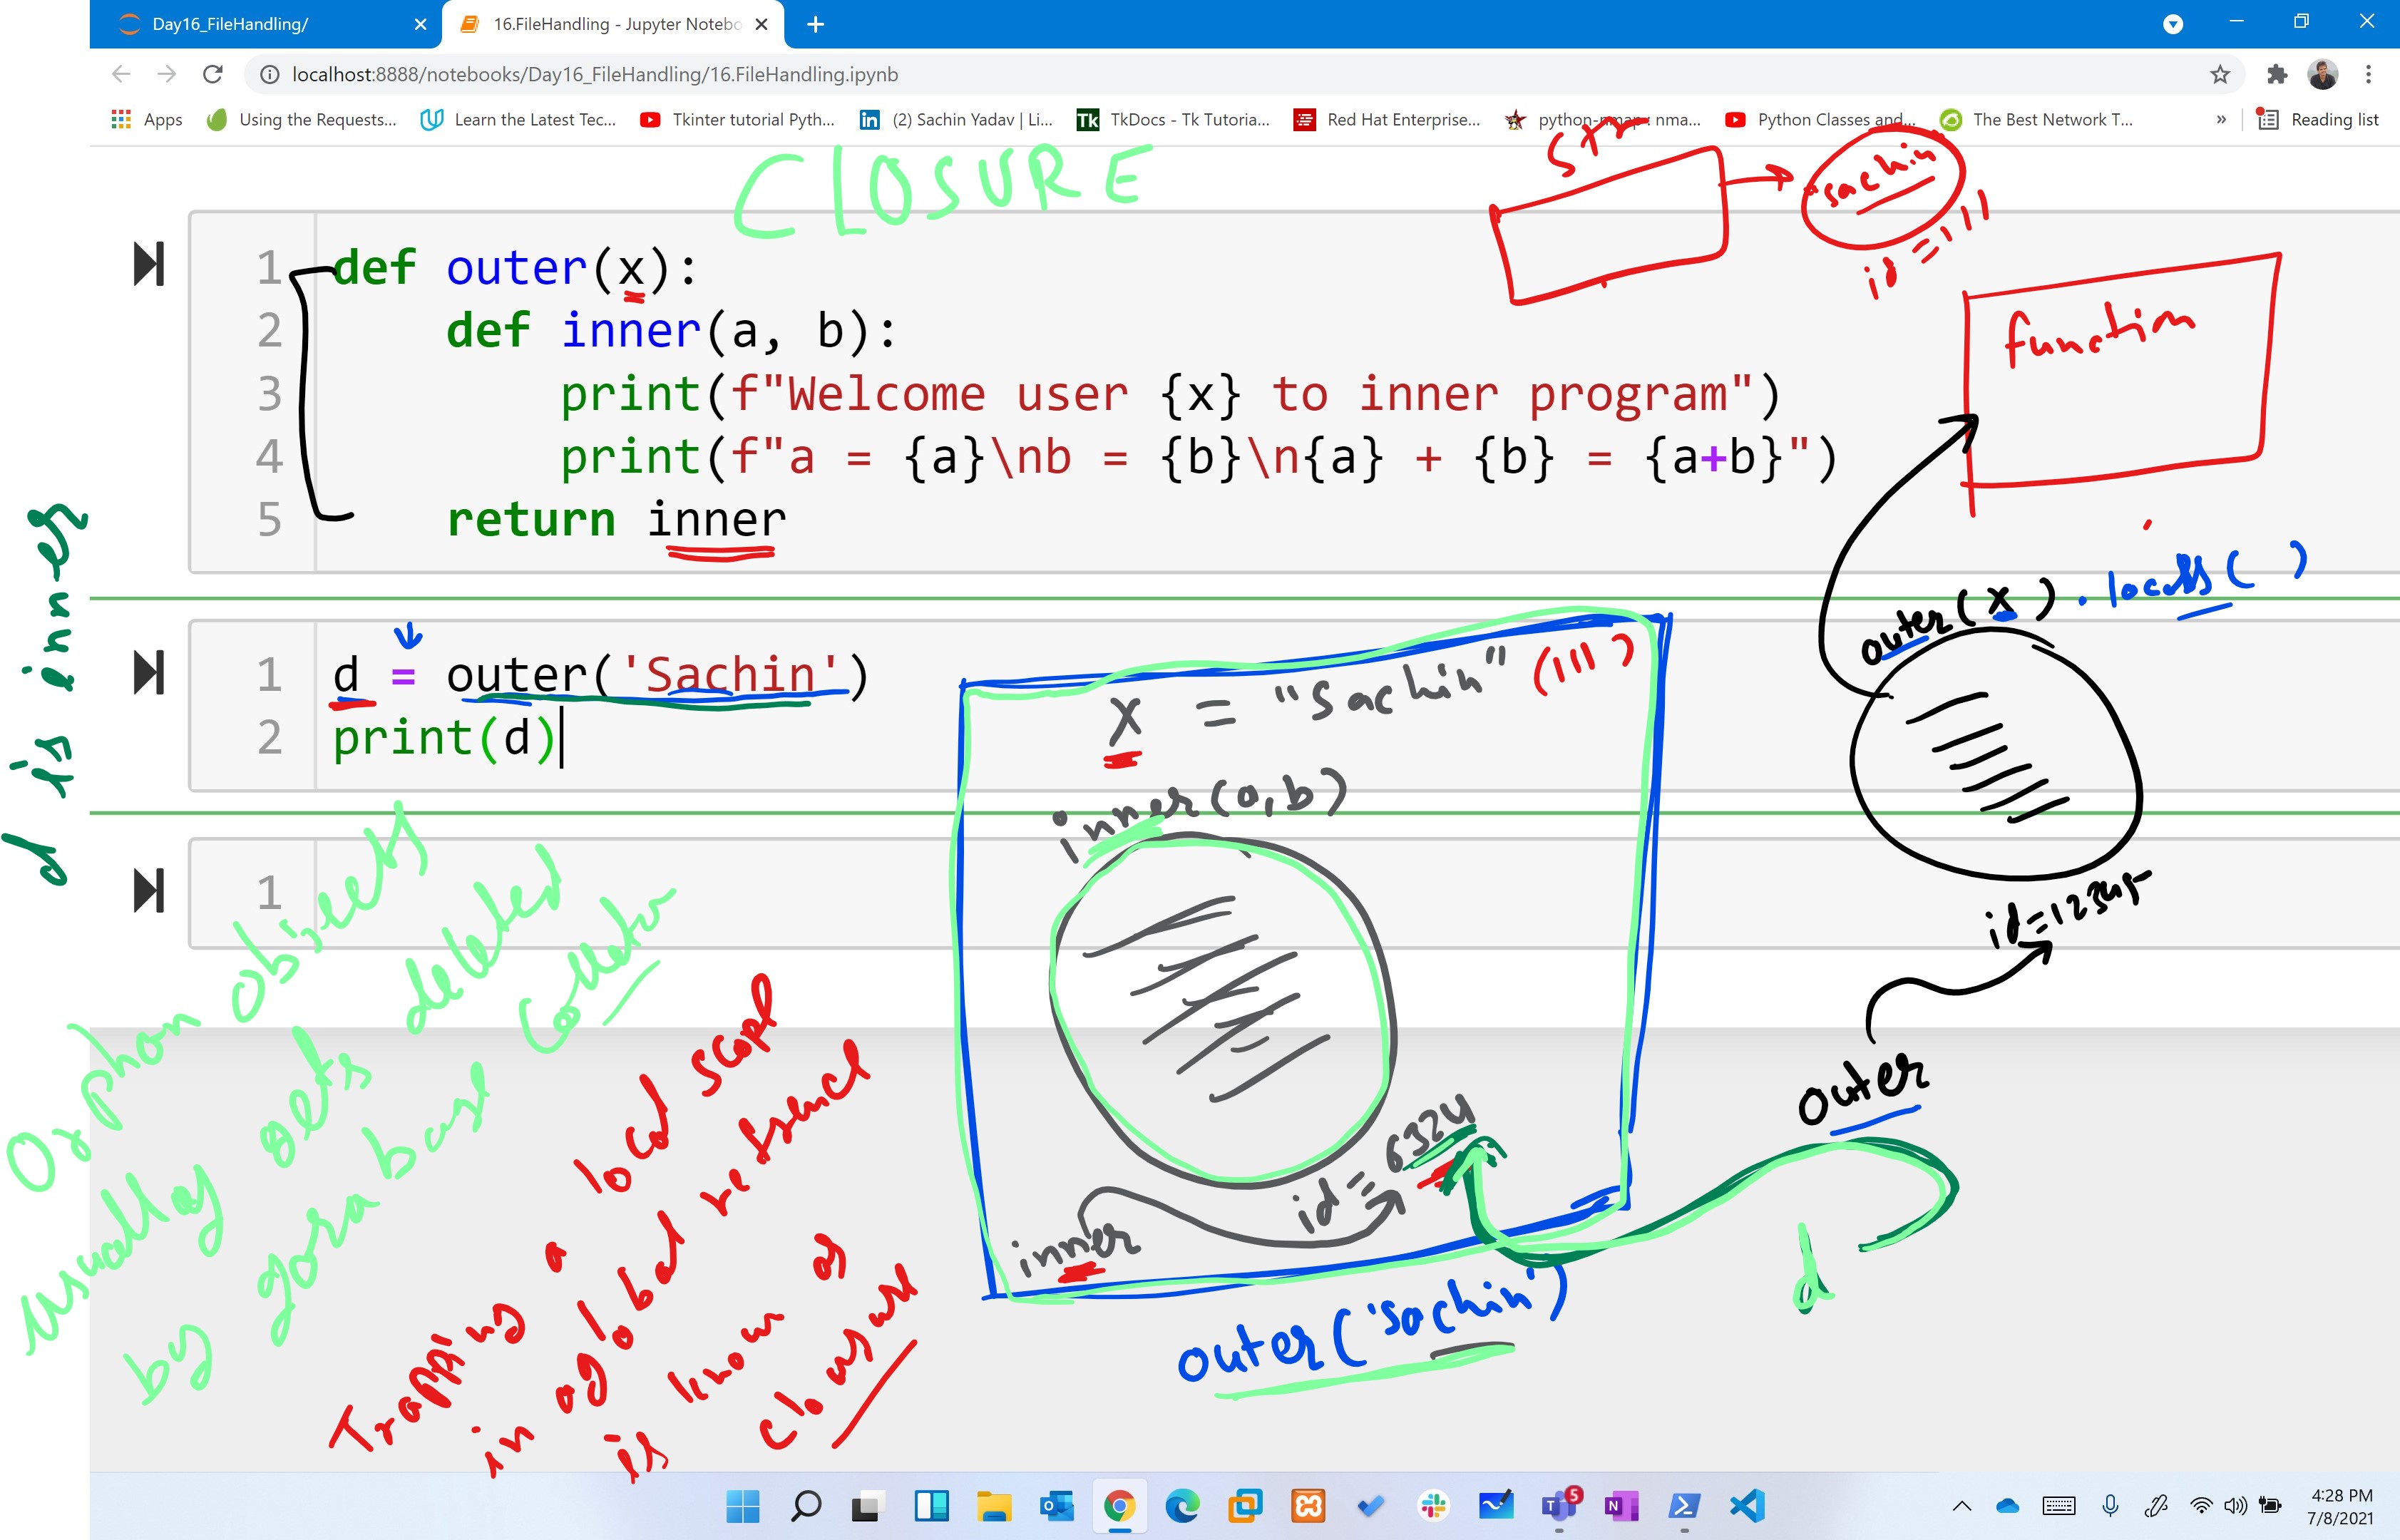 Day16_FileHandling/
16.FileHandling - Jupyter Notebo
localhost:8888/notebooks/Day16_FileHandling/16.FileHandling.ipynb
Apps
Using the Requests...
Learn the Latest Tec...
Tkinter tutorial Pyth...
(2) Sachin Yadav | Li...
Tk
TkDocs - Tk Tutoria...
Red Hat Enterprise...
python-nmap : nma...
Python Classes and...
The Best Network T...
»
Reading list
CLOSURE
str
sachin
id=111
function
1 def outer(x):
2 def inner(a, b):
3 print(f"Welcome user {x} to inner program")
4 print(f"a = {a}\nb = {b}\n{a} + {b} = {a+b}")
5 return inner
d is inner
outer(x).locals()
1 d = outer('Sachin')
2 print(d)
1
x = "Sachin" (111)
inner(a,b)
id = 6324
inner
outer('sachin')
d
id=12345
outer
Orphan objects
usually gets deleted
by garabase Collector
Trapping a local scope
in a global refrence
is know as
closure
5
4:28 PM
7/8/2021